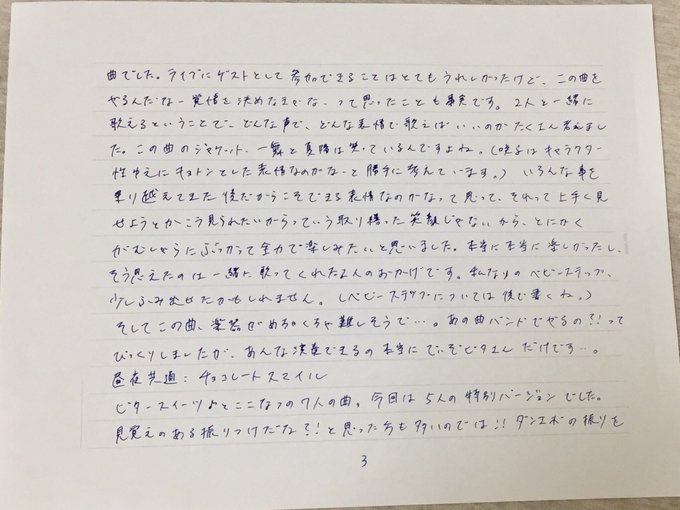 曲でした。ライブにゲストとして参加できることはとてもうれしかったけど、この曲を
やるんだなー覚悟を決めなきゃな、って思ったことも事実です。2人と一緒に
歌えるということで、どんな声で、どんな表情で歌えばいいのかたくさん考えまし
た。この曲のジャケット、一舞と夏陽は笑っているんですよね。(咲子はキャラクター
性ゆえにキョトンとした表情なのかな〜と勝手に考えています。)いろんな事を
乗り越えてきた後だからこそできる表情なのかなって思って、それって上手く見
せようとかこう見られたいからっていう取り繕った笑顔じゃないから、とにかく
がむしゃらにぶつかって全力で楽しみたいと思いました。本当に本当に楽しかったし、
そう思えたのは一緒に歌ってくれた2人のおかげです。私なりのベビーステップ、
少しふみ出せたかもしれません。(ベビーステップについては後で書くね。)
そしてこの曲、楽器がめちゃくちゃ難しそうで…。あの曲バンドでやるの?!って
びっくりしましたが、あんな演奏できるの本当にでぃぞビタさんだけです…。
昼夜共通:チョコレートスマイル
ビタースイーツ♪とここなつの7人の曲。今回は5人の特別バージョンでした。
見覚えのある振りつけだな?!と思った方も多いのでは!!ダンエボの振りを
3